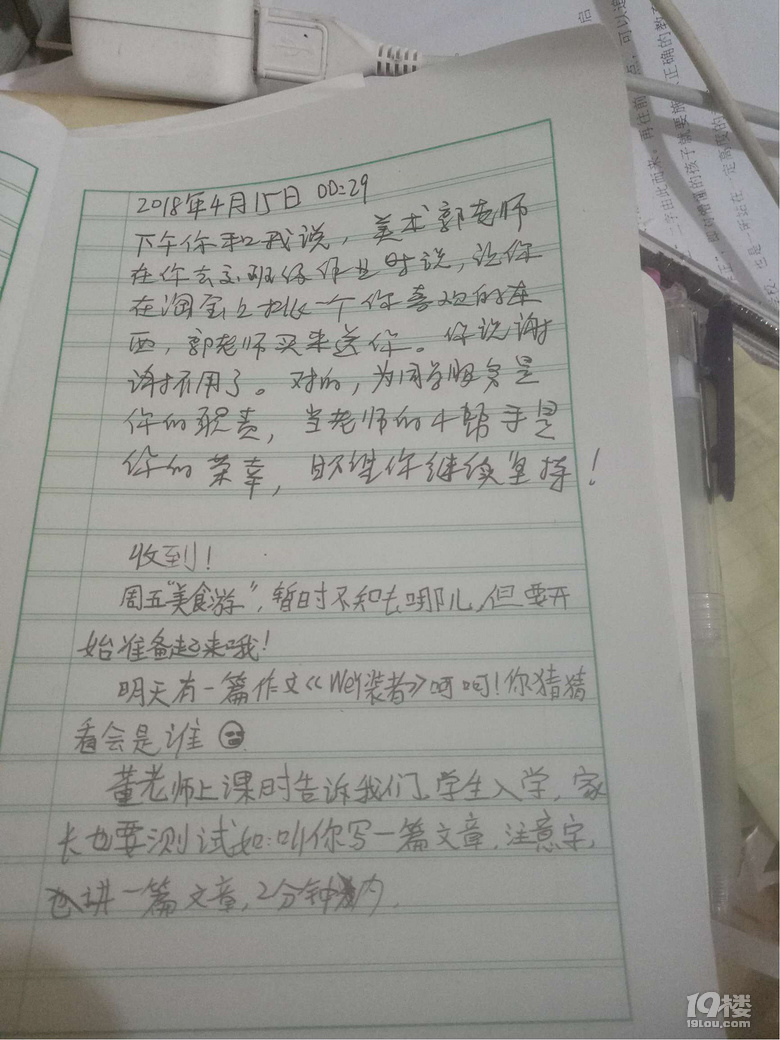 2018年4月15日 00:29
下午你和我说，美术郭老师
在你去交班级作业时说，让你
在淘宝上挑一个你喜欢的东
西，郭老师买来送你。你说谢
谢不用了。对的，为同学服务是
你的职责，当老师的小帮手是
你的荣幸，时候你继续坚持！
收到！
周五"美食游"，暂时不知去哪儿，但要开
始准备起来哦！
明天有一篇作文《Wer装者》呵呵！你猜猜
看会是谁
董老师上课时告诉我们，学生入学，家
长也要测试如：叫你写一篇文章，注意字，
讲一篇文章，2分钟内，
启
点，可以
再往前
二字由此而来。
正确的教
的孩子就要施
定高度的
所站在
19楼
19lou.com